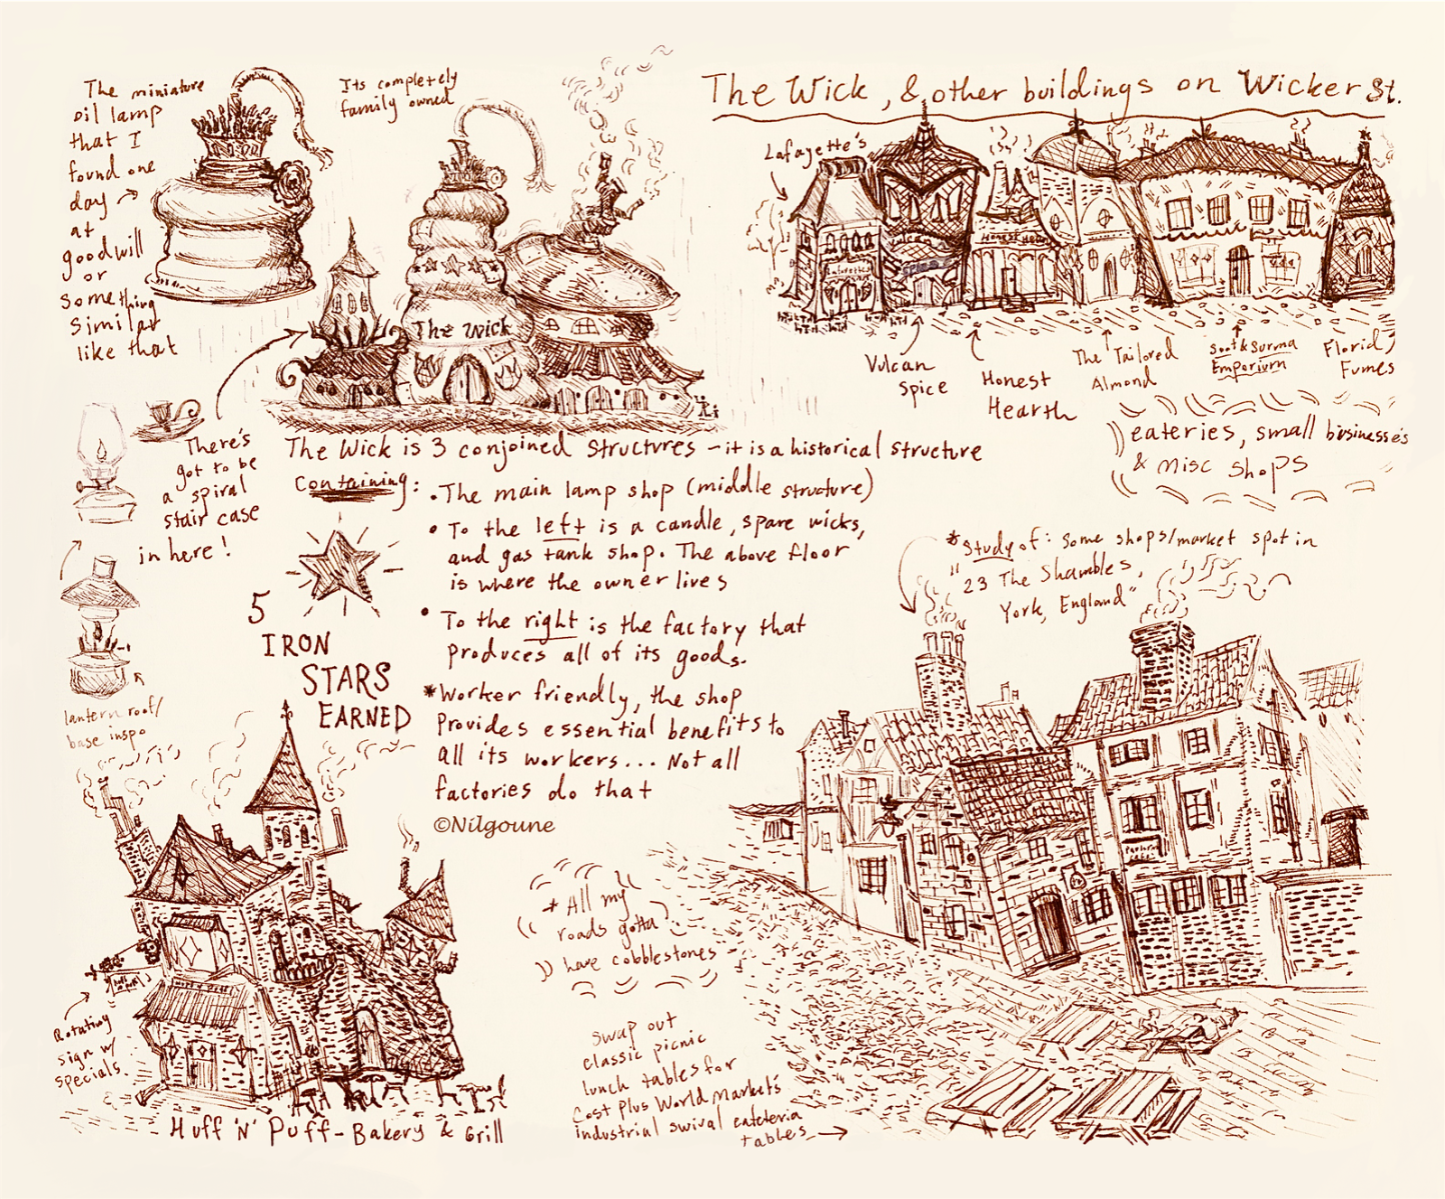 The Wick, & other buildings on Wicker St.
The miniature
oil lamp
that I
found one
day
at
goodwill
or
something
similar
like that
Its completely
family owned
The Wick
There's
got to be
a spiral
stair case
in here!
lantern roof/
base inspo
Lafayette's
Vulcan
Honest Hearth
Vulcan
Spice
Honest
Hearth
The Tailored
Almond
Soot & Surma
Emporium
Florid
Fumes
eateries, small businesses
& misc shops
The Wick is 3 conjoined structures - it is a historical structure
containing:
• The main lamp shop (middle structure)
• To the left is a candle, spare wicks,
and gas tank shop. The above floor
is where the owner lives
• To the right is the factory that
produces all of its goods.
*Worker friendly, the shop
provides essential benefits to
all its workers... Not all
factories do that
©Nilgoune
5
IRON
STARS
EARNED
*Study of: some shops/market spot in
"23 The Shambles,
York, England"
* All my
roads gotta
have cobblestones
swap out
classic picnic
lunch tables for
Cost Plus World Markets
industrial swival cafeteria
tables
Rotating
sign w/
specials.
Huff 'N' Puff - Bakery & Grill